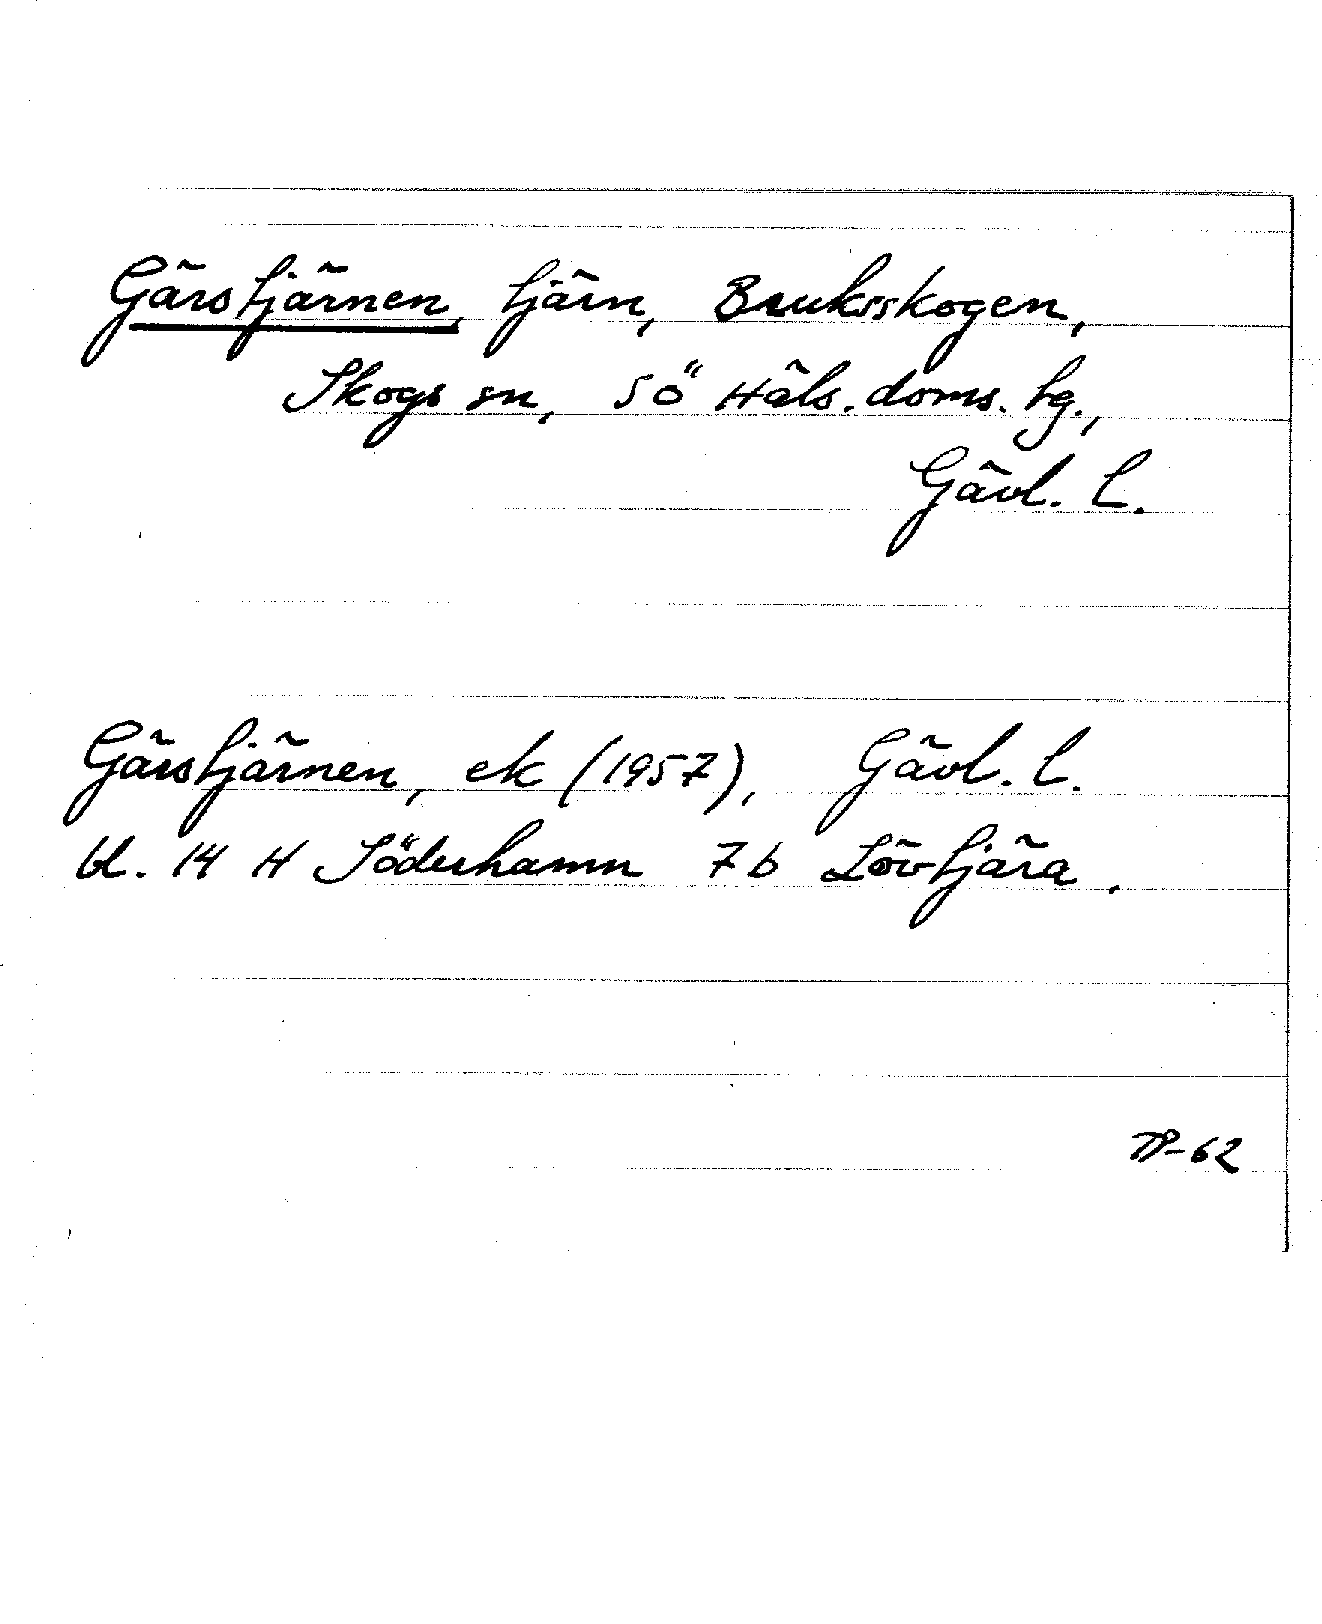 Gärstjärnen, tjärn, Bruksskogen,
Skogs sn, Sö Häls. doms. tg.,
Gävl. l.
Gärstjärnen, ek (1957), Gävl. l.
bl. 14 H Söderhamn 7b Lövtjära.
TP-62